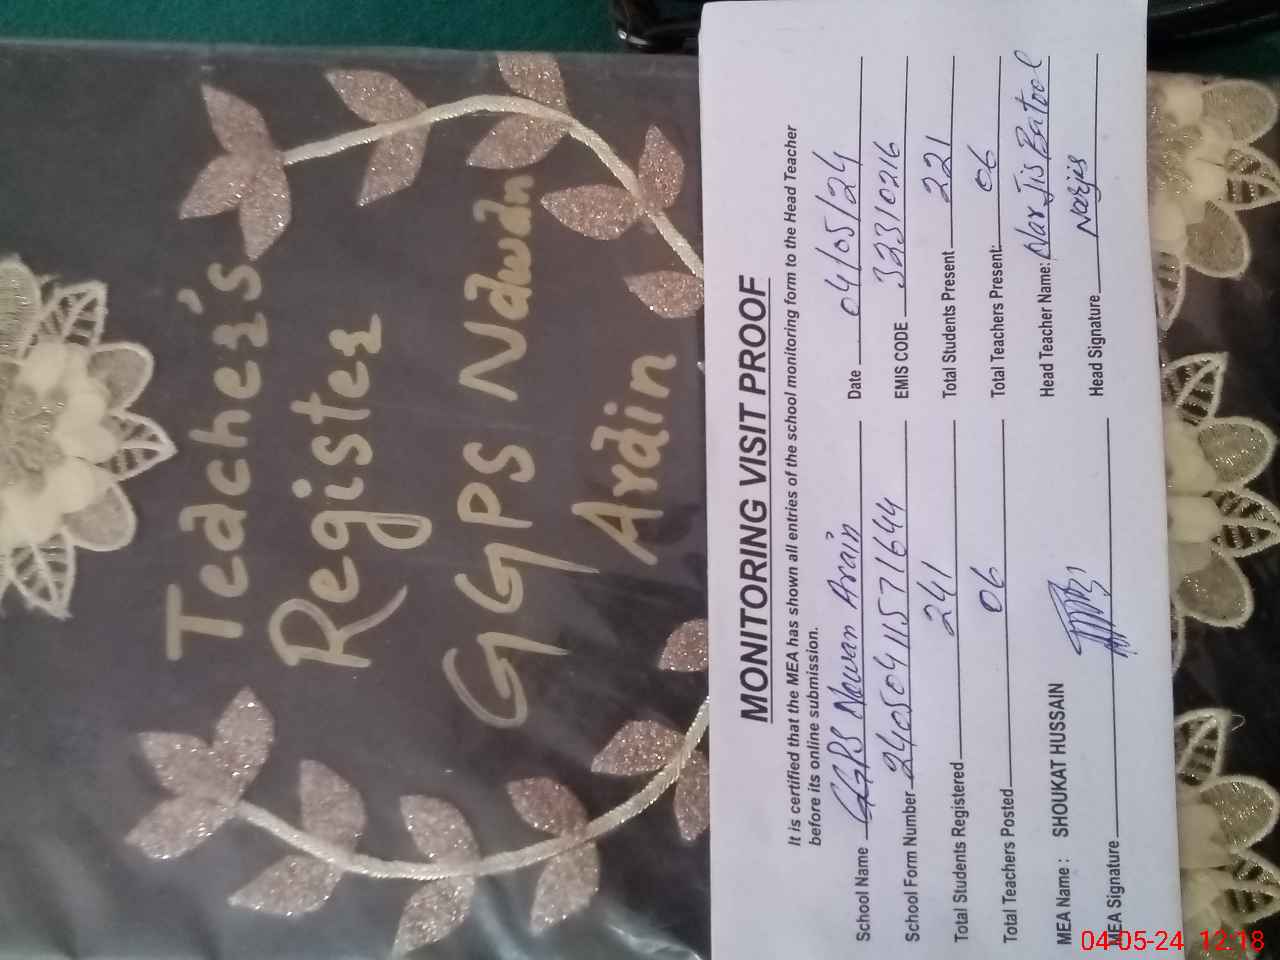 Teacher's
Register
GGPS Nawan
Arain
MONITORING VISIT PROOF
It is certified that the MEA has shown all entries of the school monitoring form to the Head Teacher
before its online submission.
School Name GGPS Nawan Arain Date 04/05/24
School Form Number 24050411571644 EMIS CODE 32310216
Total Students Registered 241 Total Students Present 221
Total Teachers Posted 06 Total Teachers Present: 06
Head Teacher Name: Narjis Batool
MEA Name : SHOUKAT HUSSAIN Head Signature Narjis
MEA Signature
04-05-24 12:18